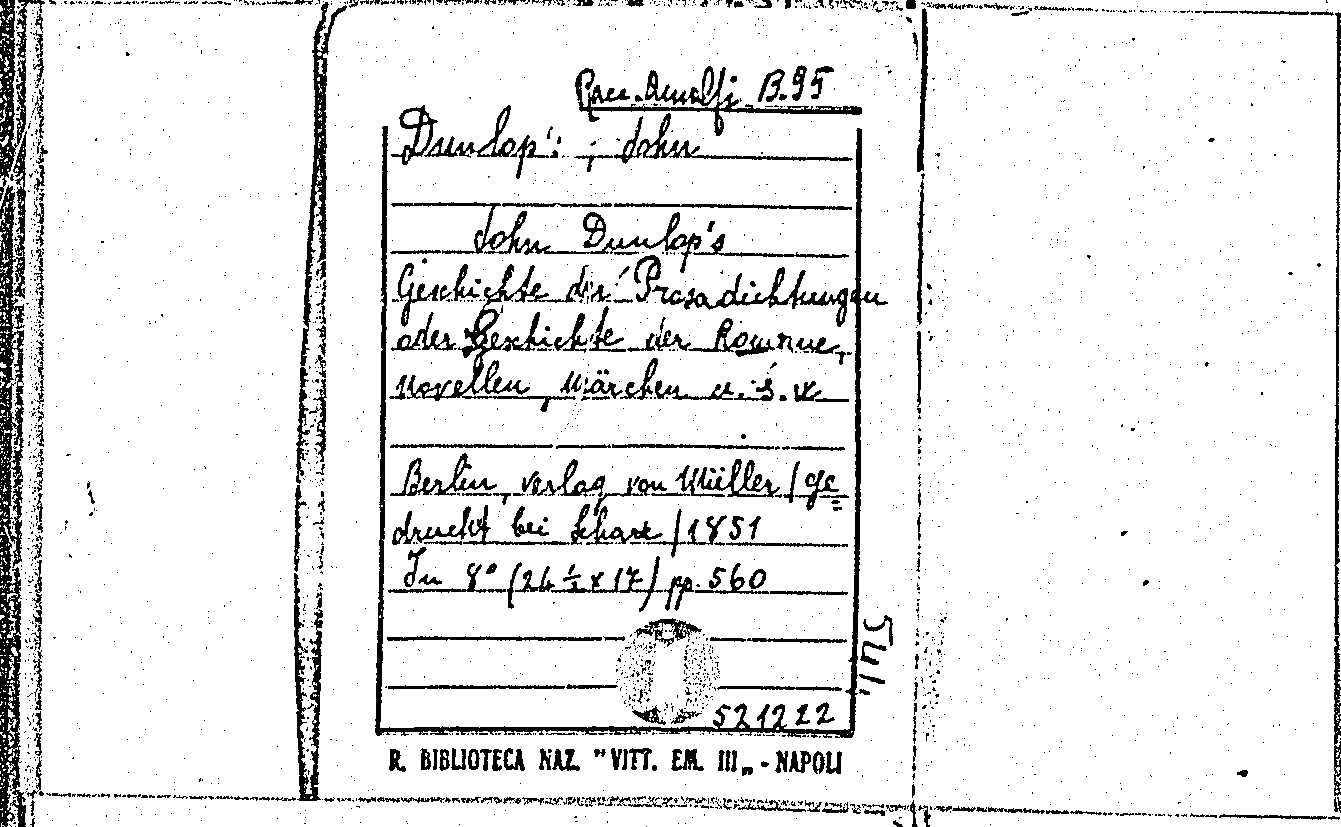 Racc. Amalfi B.95
Dunlop's: ; John
John Dunlop's
Geschichte der Prosadichtungen
oder Geschichte der Romane,
Novellen, Märchen u. s. w
Berlin, verlag von Müller / ge
druckt bei Scharr / 1851
In 8° (24 ½ x 17) pp. 560
541.
521222
R. BIBLIOTECA NAZ. "VITT. EM. III„ - NAPOLI